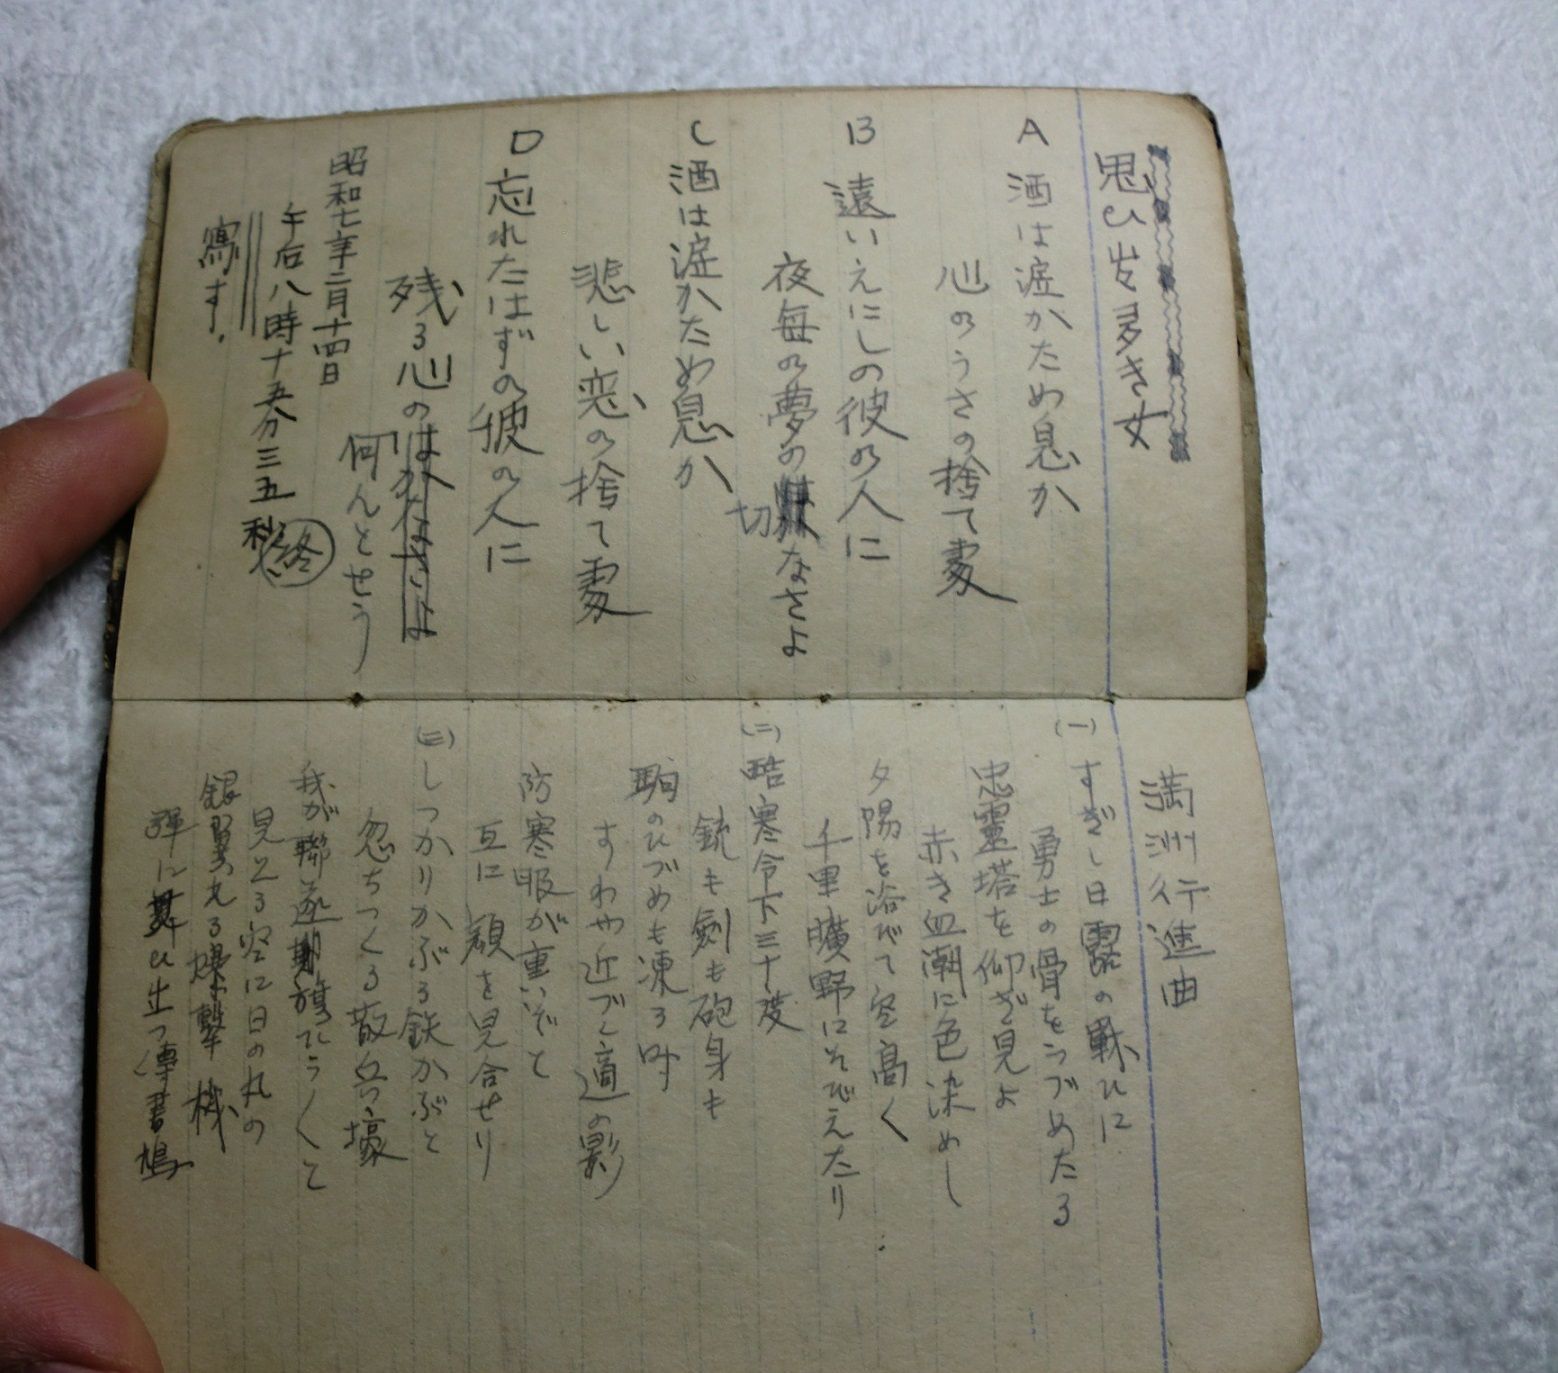 思ひ出多き女
A 酒は涙かため息か
心のうさの捨て寠
B 遠いえにしの彼の人に
夜毎の夢の切なさよ
C 酒は涙かため息か
悲しい恋の捨て寠
D 忘れたはずの彼の人に
残る心のはかなさよ
何んとせう
昭和七年二月十四日
午后八時十五分三五秒
終
寫す.
満洲行進曲
(一) すぎし日露の戦ひに
勇士の骨をうづめたる
忠霊塔を仰ぎ見よ
赤き血潮に色染めし
夕陽を浴びて空高く
千里曠野にそびえたり
(二) 酷寒令下三十度
銃も剣も砲身も
駒のひづめも凍る時
すわや近づく適の影
防寒服が重いぞと
互に顔を見合せり
(三) しつかりかぶる鉄かぶと
忽ちつくる散兵壕
我が聯隊旗てうくと
見上る空に日の丸の
銀翼光る爆撃機
弾に舞ひ立つ傳書鳩